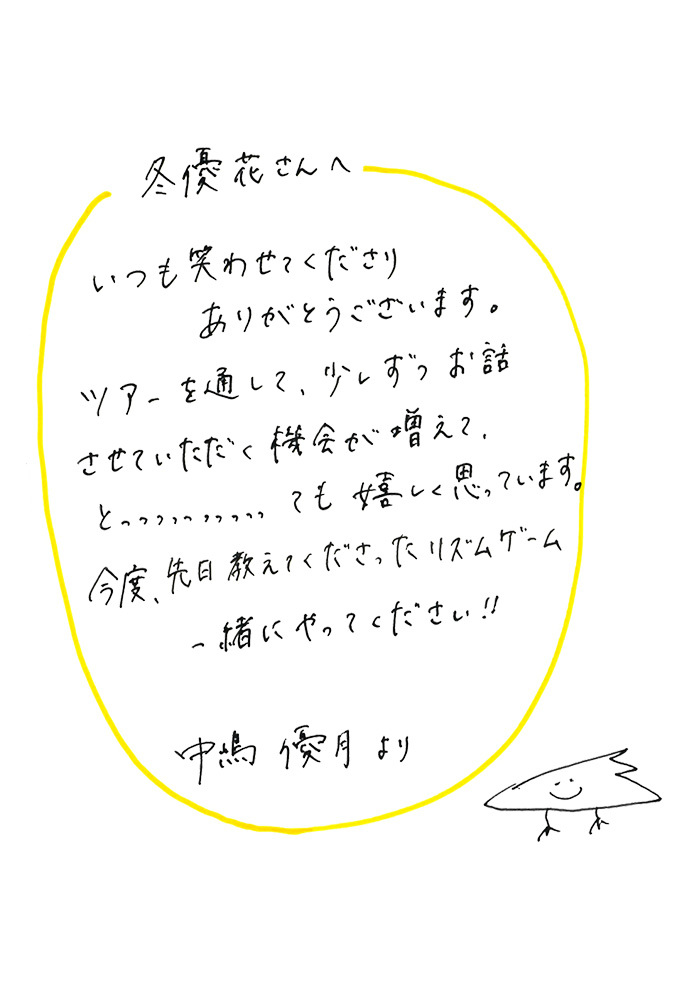 冬優花さんへ
いつも笑わせてくださり
ありがとうございます。
ツアーを通して、少しずつお話
させていただく機会が増えて、
とっっっっっっっっっても嬉しく思っています。
今度、先日教えてくださったリズムゲーム
一緒にやってください!!
中嶋 優月より